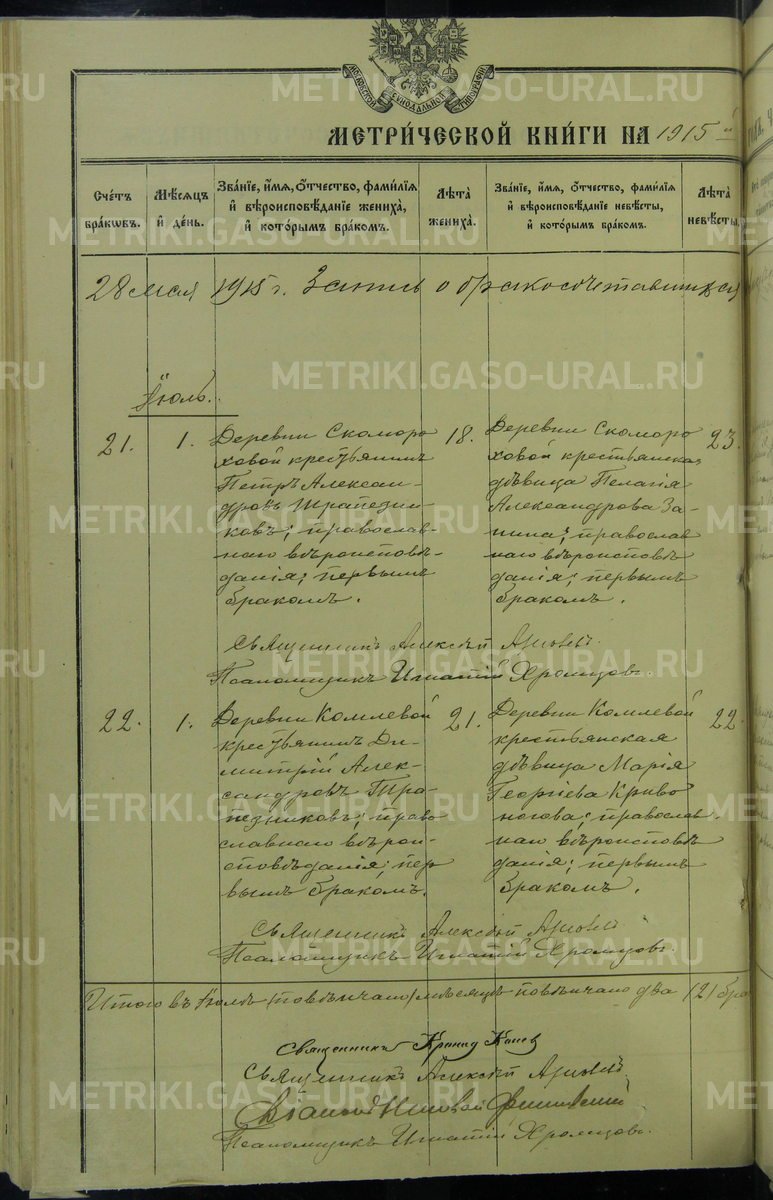 МОСКОВСКОЙ СѴНОДАЛЬНОЙ ТИПОГРАФІИ
МЕТРИ́ЧЕСКОЙ КНИ́ГИ НА 1915 й
Сче́тъ бра́кѡвъ.
Мѣ́сяцъ и́ де́нь.
Зва́нїе, и́мя, ѻ́тчество, фами́лїя и́ вѣроисповѣ́данїе жениха̀, и́ кото́рымъ бра́комъ.
Лѣ́та жениха̀.
Зва́нїе, и́мя, ѻ́тчество, фами́лїя и́ вѣроисповѣ́данїе невѣ́сты, и́ кото́рымъ бра́комъ.
Лѣ́та невѣ́сты.
28 мая 1915 г. Запись о бракосочетавшихся
Іюль.
21.
1.
Деревни Скоморо
ховой крестьянинъ
Петръ Алексан-
дровъ Трапезни-
ковъ; православ-
наго вѣроисповѣ-
данія; первымъ
бракомъ.
18.
Деревни Скоморо
ховой крестьянская
дѣвица Пелагія
Александрова За-
пина; православ
наго вѣроисповѣ
данія; первымъ
бракомъ.
23.
Священникъ Алексѣй
Псаломщикъ Игнатій Хромцовъ.
22.
1.
Деревни Комлевой
крестьянинъ Ди-
митрій Алек-
сандровъ Тра-
пезниковъ; право
славнаго вѣрои-
сповѣданія; пер
вымъ бракомъ.
21.
Деревни Комлевой
крестьянская
дѣвица Марія
Георгіева Криво
ногова; православ
наго вѣроисповѣ
данія; первымъ
бракомъ.
22
Священникъ Алексѣй
Псаломщикъ Игнатій Хромцовъ.
Итого въ Іюлѣ (повѣнчано) мѣсяцѣ повѣнчано два (2) бра
Священникъ
Священникъ Алексѣй
Псаломщикъ Игнатій Хромцовъ.
METRIKI.GASO-URAL.RU